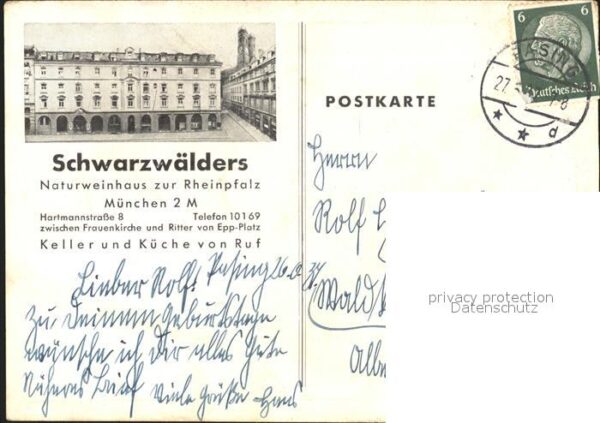 Schwarzwälders
Naturweinhaus zur Rheinpfalz
München 2 M
Hartmannstraße 8 Telefon 10169
zwischen Frauenkirche und Ritter von Epp-Platz
Keller und Küche von Ruf
Pasing 26.
Lieber Rolf!
Zu Deinem Geburtstage
wünsche ich Dir alles Gute
Näheres Brief Viele Grüße Hans
POSTKARTE
6 6
Deutsches Reich
PASING
27.
d
Herrn
Rolf
Wald
privacy protection
Datenschutz